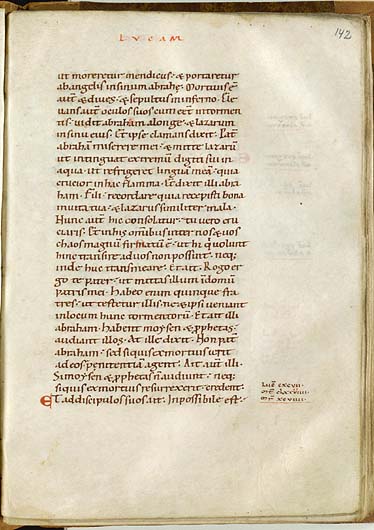 LVCAM
142
ut moreretur mendicus · & portaretur
ab angelis in sinum abrahę. Mortuus ē
aut̄ & diues · & sepultus in inferno. Ele
uans aut̄ oculos suos cum eēt in tormen
tis · uidit abraham a longe · & lazarum
in sinu eius. Et ipse clamans dixit. Pat̄
abraham miserere mei · & mitte lazarū
ut intinguat extremū digiti sui in
aqua · ut refriger& linguā meā · quia
crucior in hac flamma. Et dixit illi abra
ham. Fili recordare quia recepisti bona
in uita tua · & lazarus similiter mala.
Nunc aut̄ hic consolatur · tu uero cru
ciaris. Et in his omnibus inter nos & uos
chaos magnū firmatū ē · ut hi qui uolunt
hinc transire ad uos non possint · neq;
inde huc transmeare. Et ait. Rogo er
go te pater · ut mittas illum in domū
patris mei. Habeo enim quinque fra
tres · ut testetur illis · ne & ipsi ueniant
in locum hunc tormentorū. Et ait illi
abraham. Habent moysen & pphetas ·
audiant illos. At ille dixit. Non pat̄
abraham · sed si quis ex mortuis ierit
ad eos penitentiā agent. Ait aut̄ illi.
Si moysen & pphetas n̄ audiunt · neq;
si quis ex mortuis resurrexerit credent.
ET ad discipulos suos ait. Inpossibile est ·